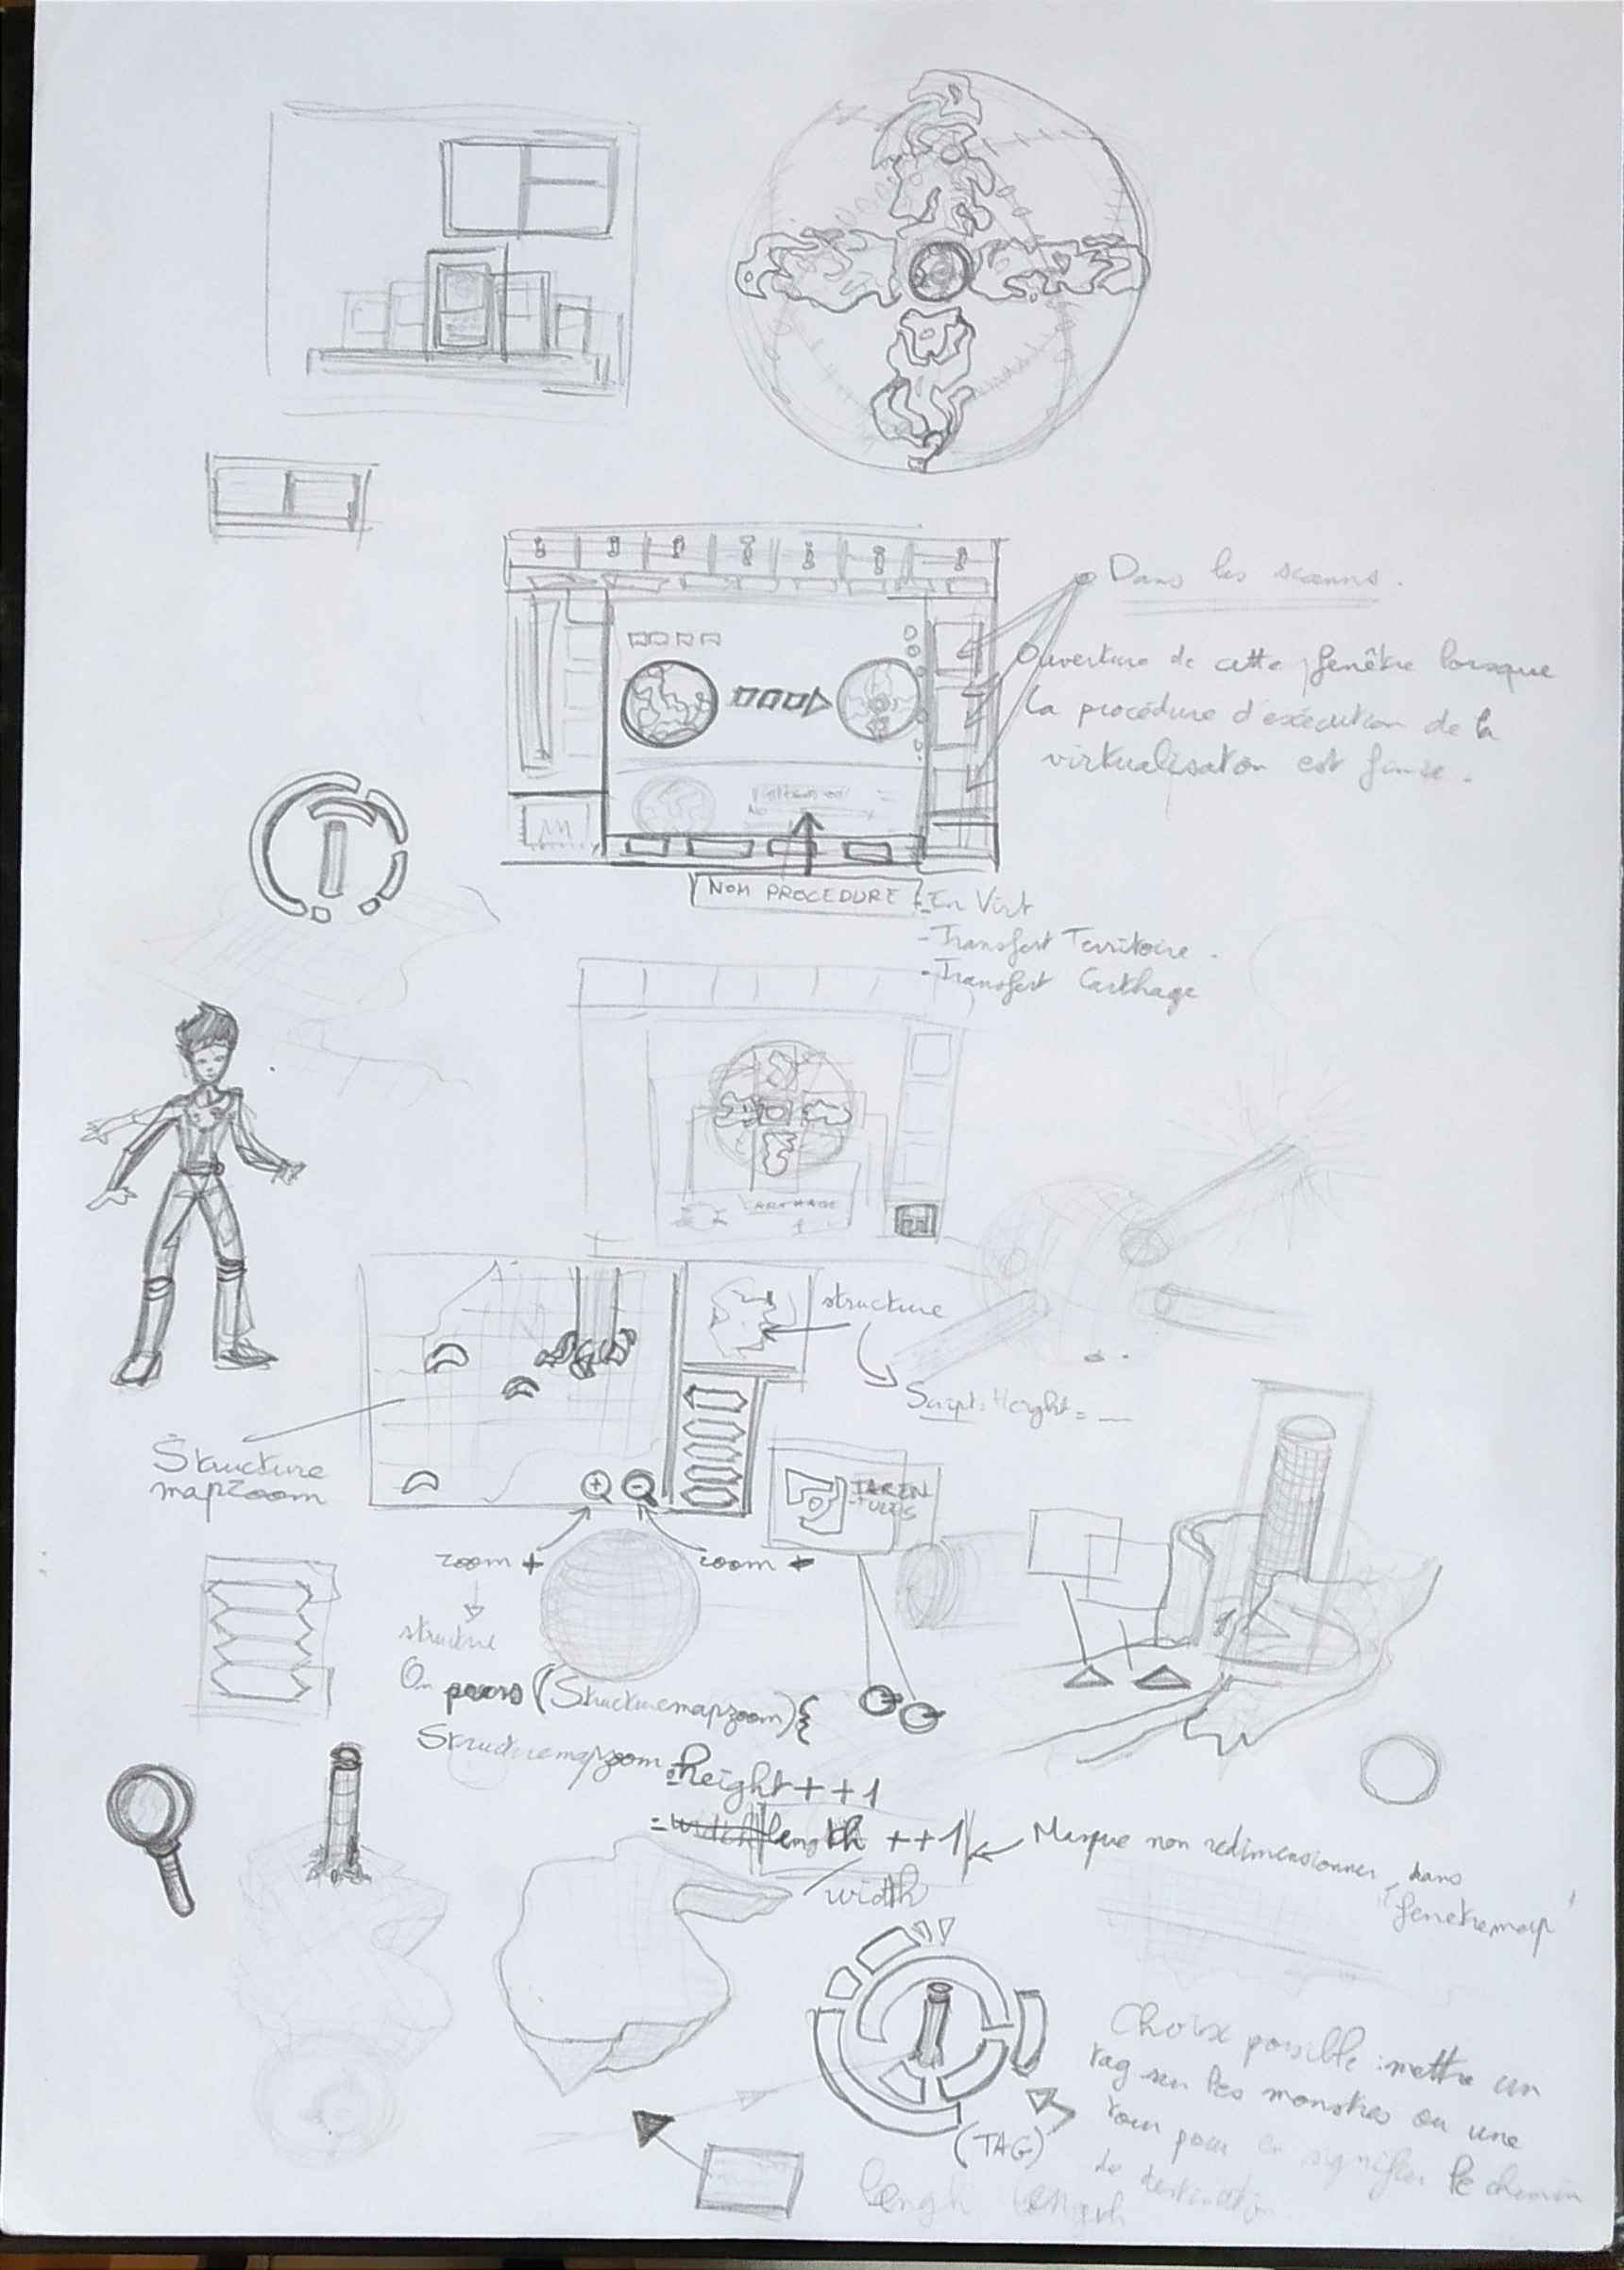 Dans les scanns.
Ouverture de cette fenêtre lorsque
la procédure d'exécution de la
virtualisaton est finie.
NOM PROCEDURE
- En Virt
- Transfert Territoire.
- Transfert Carthage
CARTHAGE
structure
Script: Height = __
Structure
mapzoom
zoom +
zoom -
structure
On press (Structuremapzoom) {
Structuremapzoom.height + + 1
= length ++1
width
Masque non redimensionner, dans
"fenetremap"
Choix possible : mettre un
tag sur les monstres ou une
tour pour en signifier le chemin
de destination
(TAG)
lengh length